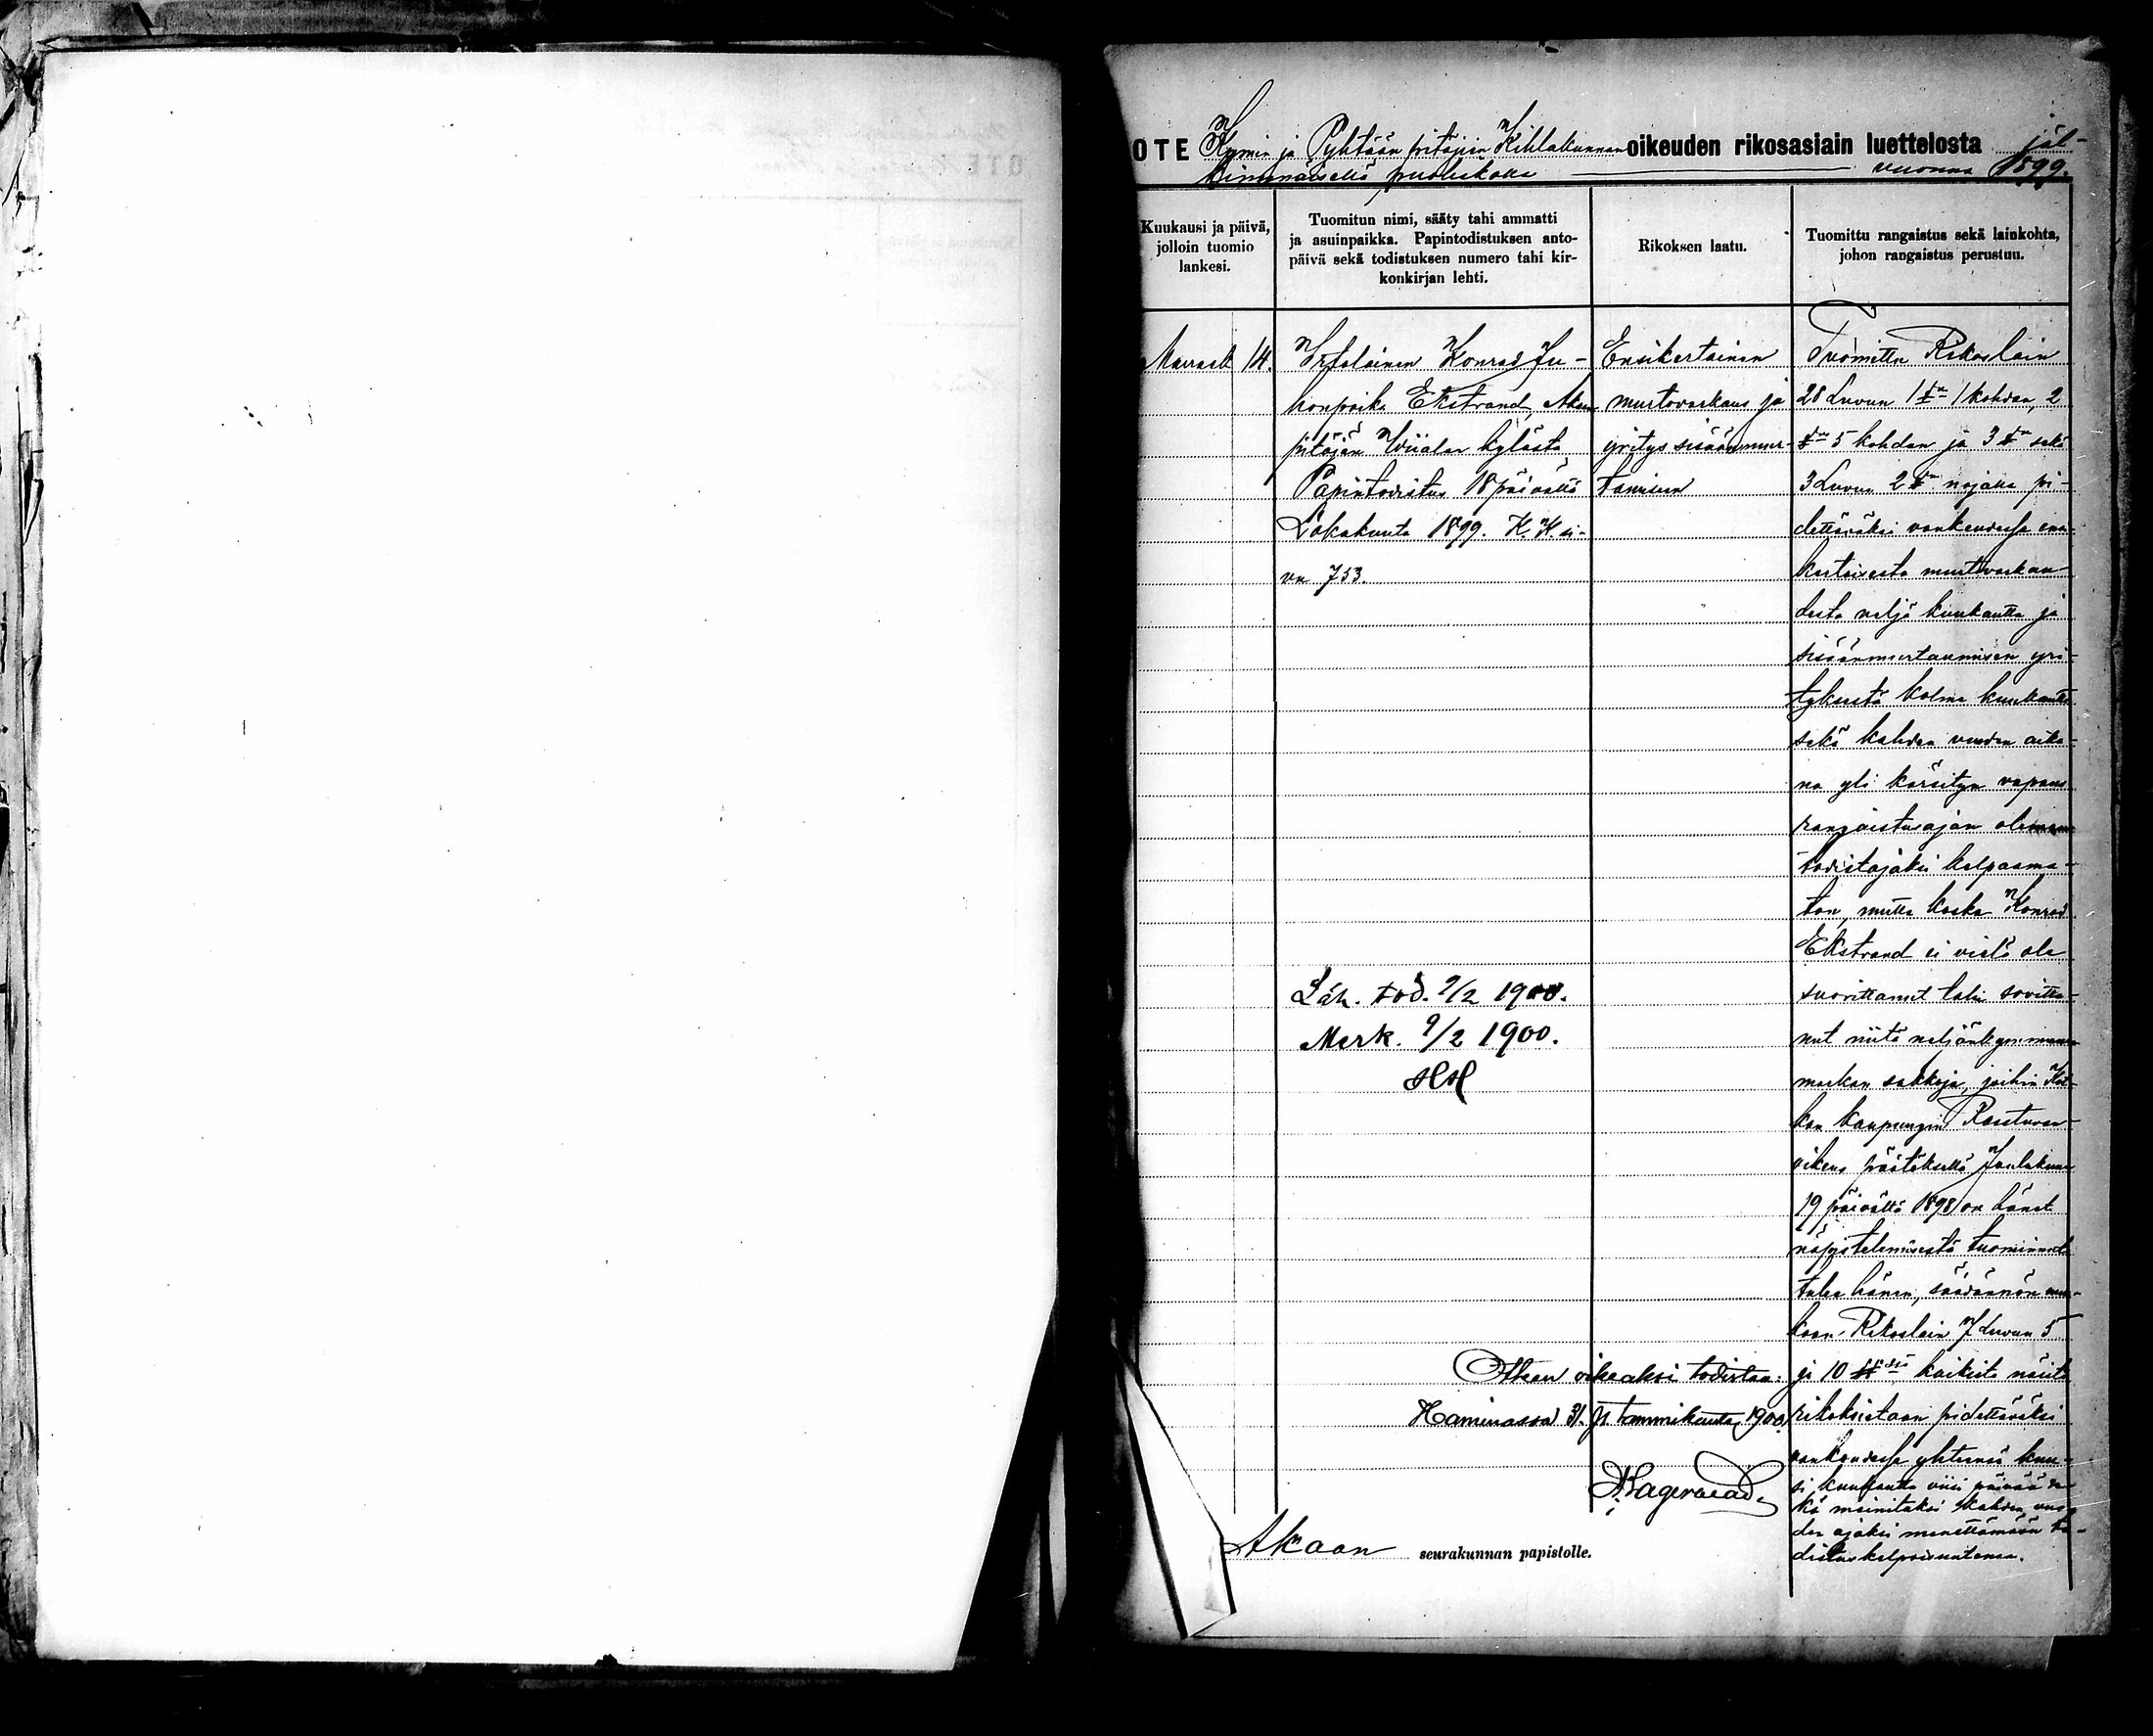 OTE Kymin ja Pyhtään pitäjäin Kihlakunnan oikeuden rikosasiain luettelosta jäl-
kimmäisellä puoliskolla vuonna 1899.
Kuukausi ja päivä,
jolloin tuomio
lankesi.
Tuomitun nimi, sääty tahi ammatti
ja asuinpaikka. Papintodistuksen anto-
päivä sekä todistuksen numero tahi kir-
konkirjan lehti.
Rikoksen laatu.
Tuomittu rangaistus sekä lainkohta,
johon rangaistus perustuu.
Marrask 14.
Irtolainen Konrad Ju-
honpoika Ekstrand, Akaan
pitäjän Wiialan kylästä
Papintodistus 18 päivältä
Lokakuuta 1899. K. K. si-
vu 753.
Läh. tod. 9/2 1900.
Merk. 9/2 1900.
Ensikertainen
murtovarkaus ja
yritys sisäänmur-
tamiseen
Tuomittu Rikoslain
28 Luvun 1 §:n 1 kohdan, 2
§:n 5 kohdan ja 3 §:n sekä
3 Luvun 2 §:n nojalla pi-
dettäväksi vankeudessa ensi-
kertaisesta murtovarkau-
desta neljä kuukautta ja
sisäänmurtaumisen yri-
tyksestä kolme kuukautta
sekä kahden vuoden aika-
na yli kärsityn vapaus
rangaistusajan olemaan
todistajaksi kelpaama-
ton, mutta koska Konrad
Ekstrand ei vielä ole
suorittanut tahi sovitta-
nut niitä neljänkymmenen
markan sakkoja, joihin Kot-
kan kaupungin Raastuvan-
oikeus päätöksellä Joulukuun
19 päivältä 1898 on hänet
näpistelemisestä tuominnut
tulee hänen, säädännön mu-
kaan Rikoslain 7 Luvun 5
ja 10 §§:issä kaikista näistä
rikoksistaan pidettäväksi
vankeudessa yhteensä kuu-
si kuukautta viisi päivää se-
kä mainituksi kahden vuo-
den ajaksi menettämään to-
distuskelpoisuutensa.
Otteen oikeaksi todistaa:
Haminassa 31. p. tammikuuta 1900.
Akaan seurakunnan papistolle.